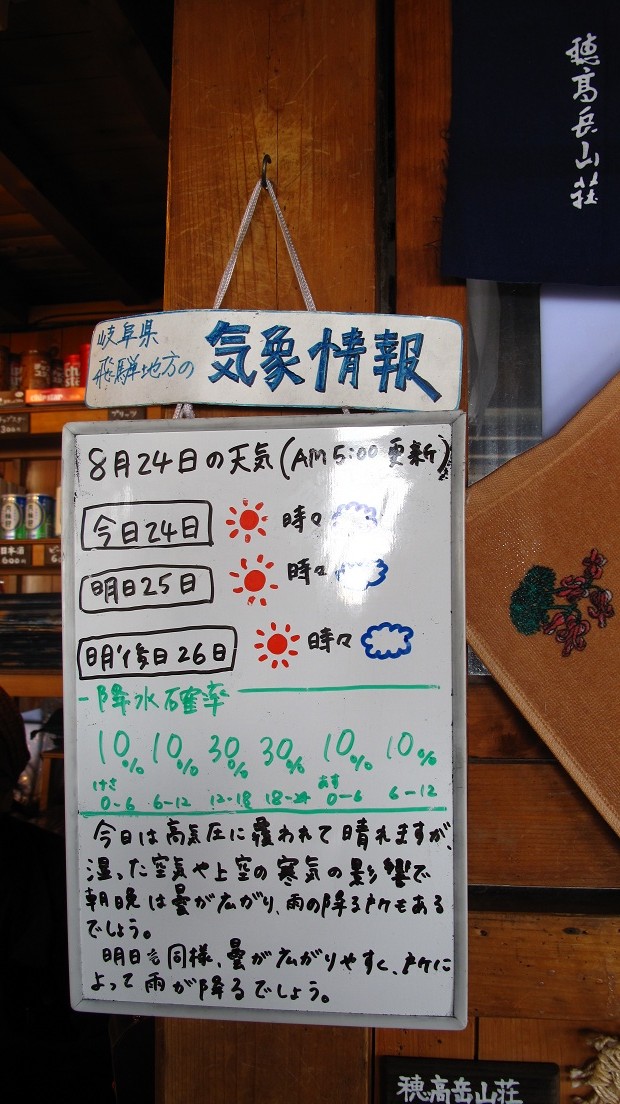 穂高岳山荘
岐阜県
飛騨地方の
気象情報
8月24日の天気(AM5:00更新)
今日24日 時々
明日25日 時々
明後日26日 時々
降水確率
10% 10% 30% 30% 10% 10%
けさ あす
0-6 6-12 12-18 18-24 0-6 6-12
今日は高気圧に覆われて晴れますが、
湿った空気や上空の寒気の影響で
朝晩は曇が広がり、雨の降る所もある
でしょう。
明日も同様、曇が広がりやすく、所に
よって雨が降るでしょう。
プリッツ
300円
日本酒
600円
穂高岳山荘